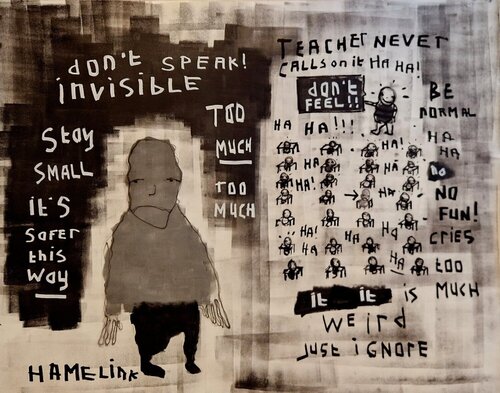 DON'T SPEAK!
INVISIBLE
TOO
MUCH
TOO
MUCH
Stay
SMALL
IT'S
SaFer
this
WAY
HAMELINK
TEACHER NEVER
CALLS on it HA HA!
DON'T
FEEL!!
BE
NORMAL
HA
HA
HA HA!!!
HA
HA!
HA
HA!
HA
HA
HA
HA
!HA!
HA
HA
Ha
HA
NO
FUN!
CRIES
too
MUCH
it it is
Weird
Just iGNORE